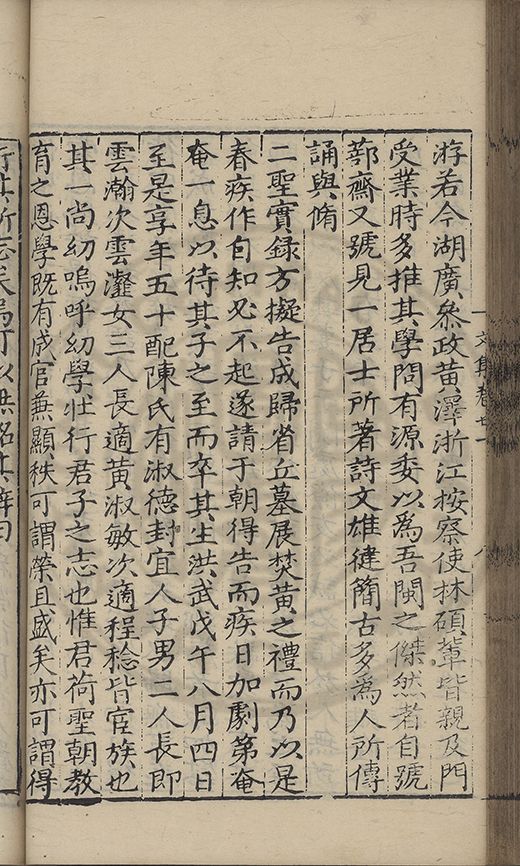 游若今湖廣叅政黃澤浙江按察使林碩輩皆親及門
受業時多推其學問有源委以爲吾閩之傑然者自號
蔀齋又號見一居士所著詩文雄健簡古多爲人所傳
誦與脩
二聖實録方擬告成歸省丘墓展焚黃之禮而乃以是
春疾作自知必不起遂請于朝得告而疾日加劇第奄
奄一息以待其子之至而卒其生洪武戊午八月四日
至是享年五十配陳氏有淑德封宜人子男二人長即
雲瀚次雲灋女三人長適黃淑敏次適程稔皆宦族也
其一尚幼嗚呼幼學壯行君子之志也惟君荷聖朝教
育之恩學既有成官兼顯秩可謂榮且盛矣亦可謂得
行其所志矣爲可以無銘其辭曰
文集卷廿一
八